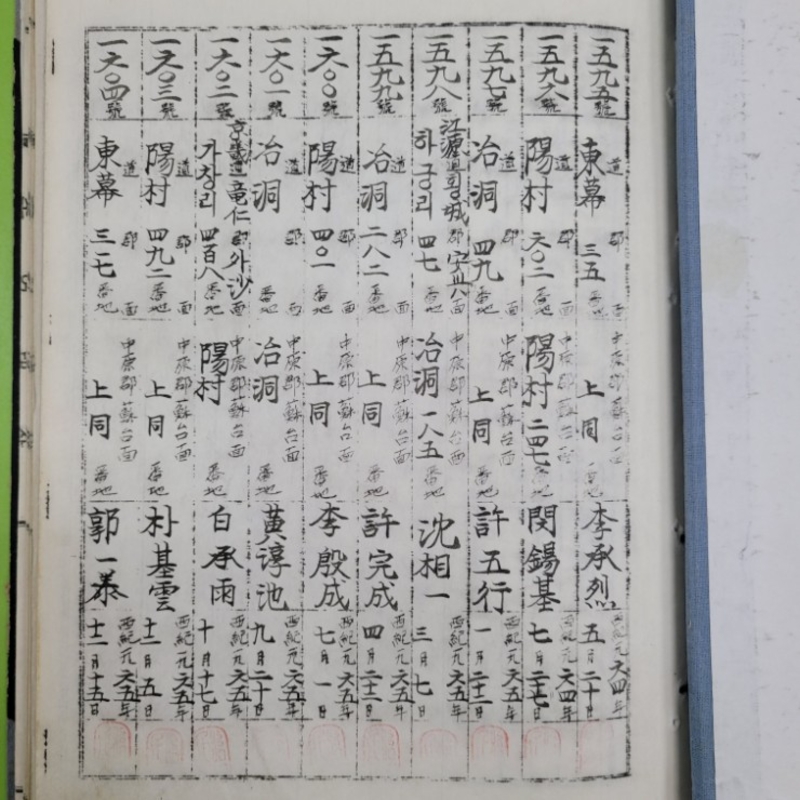 一五九五號
東幕 道
三五 郡
番地 面
中原郡蘇台面
上同
番地
李承烈
西紀一九六四年
五月二十日
一五九六號
陽村 道
六〇二 郡
番地 面
中原郡蘇台面
陽村二四七
番地
閔錫基
西紀一九六四年
七月二七日
一五九七號
冶洞 道
四九 郡
番地 面
中原郡蘇台面
上同
番地
許五行
西紀一九六五年
一月二十二日
一五九八號
江源道횡城郡 面
하궁리 四七
番地
中原郡蘇台面
冶洞一八五
番地
沈相一
西紀一九六五年
三月七日
一五九九號
冶洞 道
二八二 郡
番地 面
中原郡蘇台面
上同
番地
許完成
西紀一九六五年
四月二十二日
一六〇〇號
陽村 道
四〇一 郡
番地 面
中原郡蘇台面
上同
番地
李殷成
西紀一九六五年
七月一日
一六〇一號
冶洞 道
郡
番地 面
中原郡蘇台面
冶洞
番地
黃淳池
西紀一九六五年
九月二十日
一六〇二號
京畿道竜仁郡外沙面
가창리四百八
番地
中原郡蘇台面
陽村
番地
白承雨
西紀一九六五年
十月十七日
一六〇三號
陽村 道
四九二 郡
番地 面
中原郡蘇台面
上同
番地
朴基雲
西紀一九六五年
十二月五日
一六〇四號
東幕 道
三一七 郡
番地 面
中原郡蘇台面
上同
番地
郭一泰
西紀一九六五年
十二月十五日